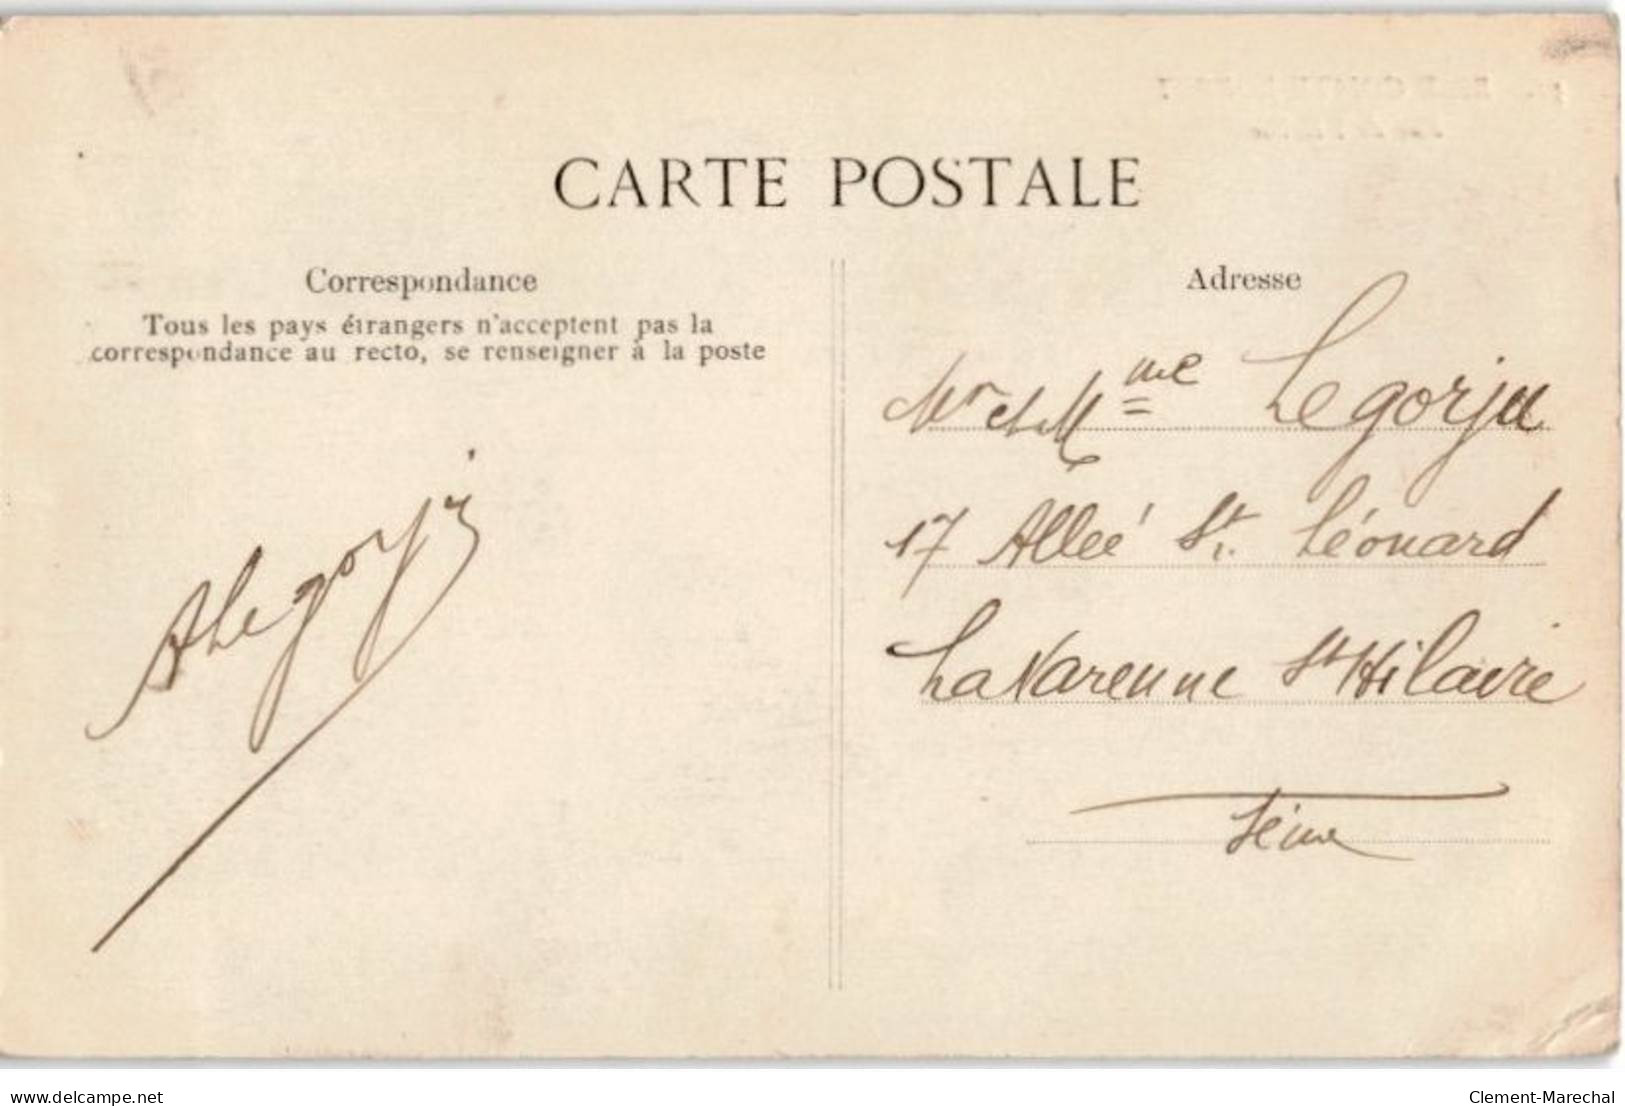 CARTE POSTALE
Correspondance
Tous les pays étrangers n'acceptent pas la
correspondance au recto, se renseigner à la poste
ALegorju
Adresse
Mr et Mme Legorju
17 Alleé St. Léonard
La Varenne St Hilaire
Seine
delcampe.net
Clement-Marechal